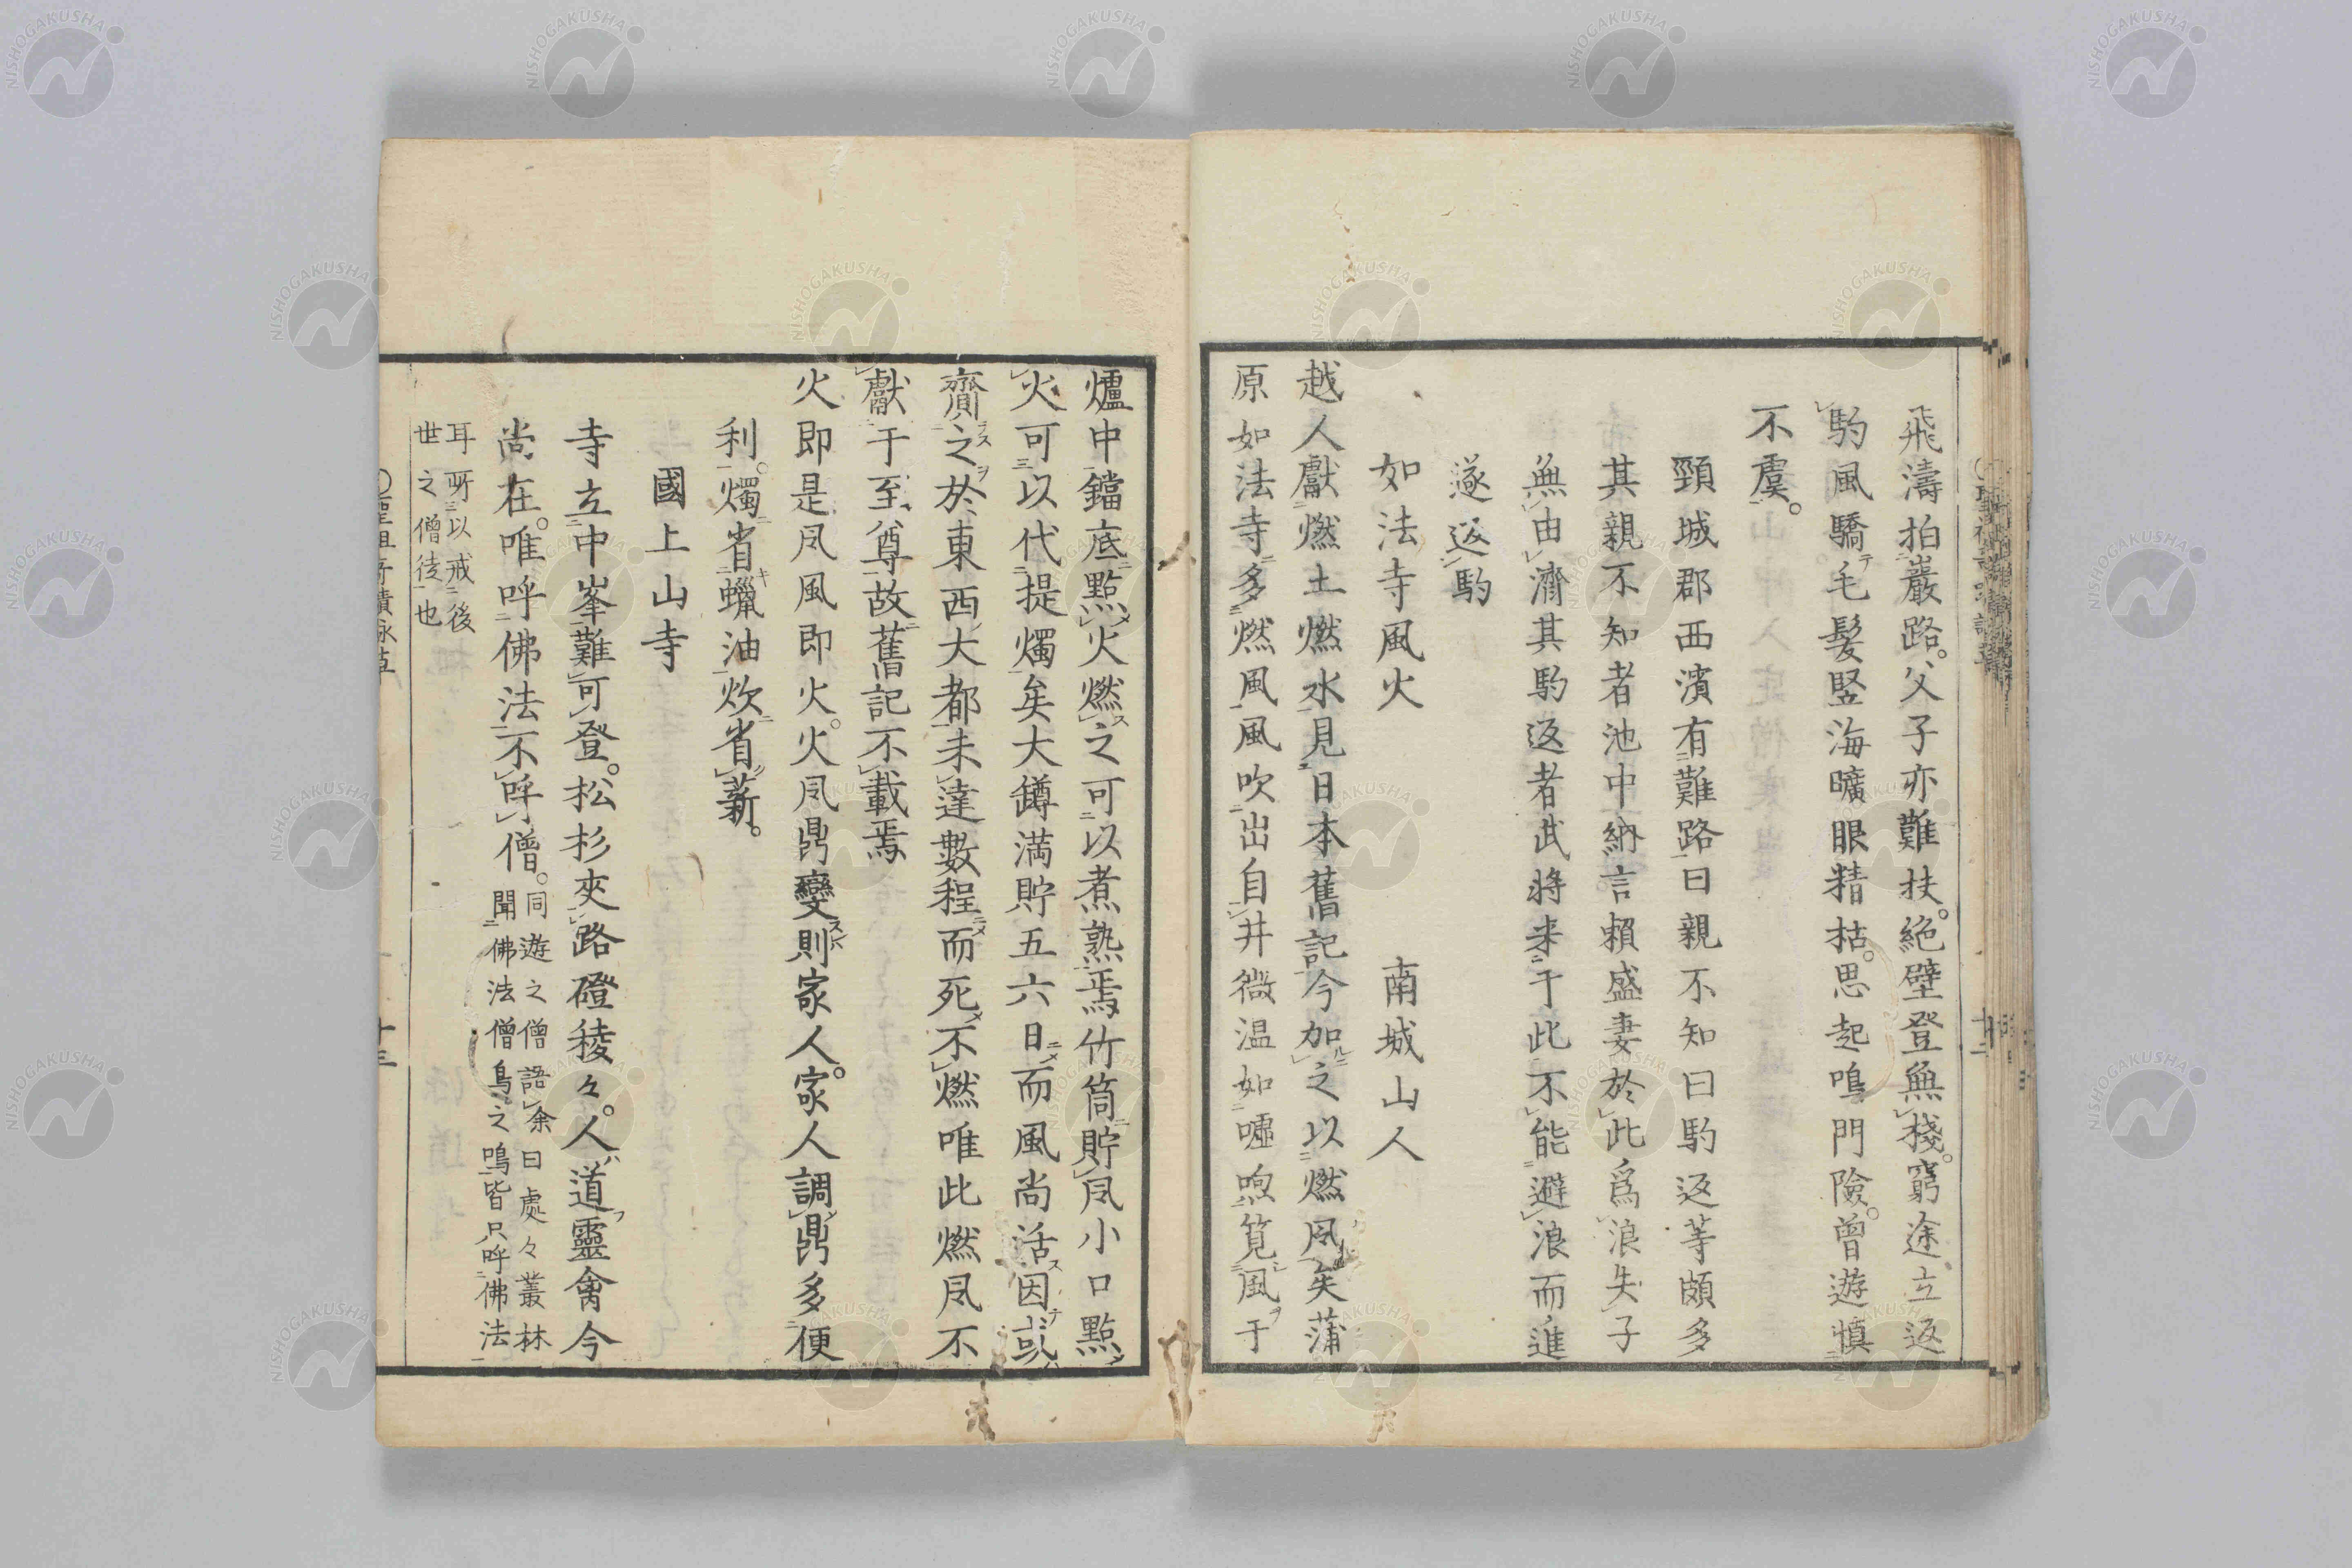 飛濤拍巖路。父子亦難扶。絶壁登無棧。窮途立返
駒風驕毛髮竪海曠眼精枯。思起鳴門險。曾遊慎
不虞。
頸城郡西濱有難路曰親不知曰駒返等頗多
其親不知者池中納言賴盛妻於此爲浪失子
無由濟其駒返者武将来于此不能避浪而進
遂返駒
如法寺風火　南城山人
越人獻燃土燃水見日本舊記今加之以燃凨矣蒲
原如法寺多燃風風吹出自井微温如噓煦筧風于
爐中鐺底點火燃之可以煮熟焉竹筒貯凨小口點
火可以代提燭矣大罇満貯五六日而風尚活因或
齎之於東西大都未達數程而死不燃唯此燃凨不
獻于至尊故舊記不載焉
火即是凨風即火。火凨鼎變則家人。家人調鼎多便
利。燭省蠟油炊省薪。
國上山寺
寺立中峯難可登。松杉夾路磴稜々。人道靈禽今
尚在。唯呼佛法不呼僧。
同遊之僧語余曰處々叢林
聞佛法僧鳥之鳴皆只呼佛法
耳所以戒後
世之僧徒也
十三
NISHOGAKUSHA